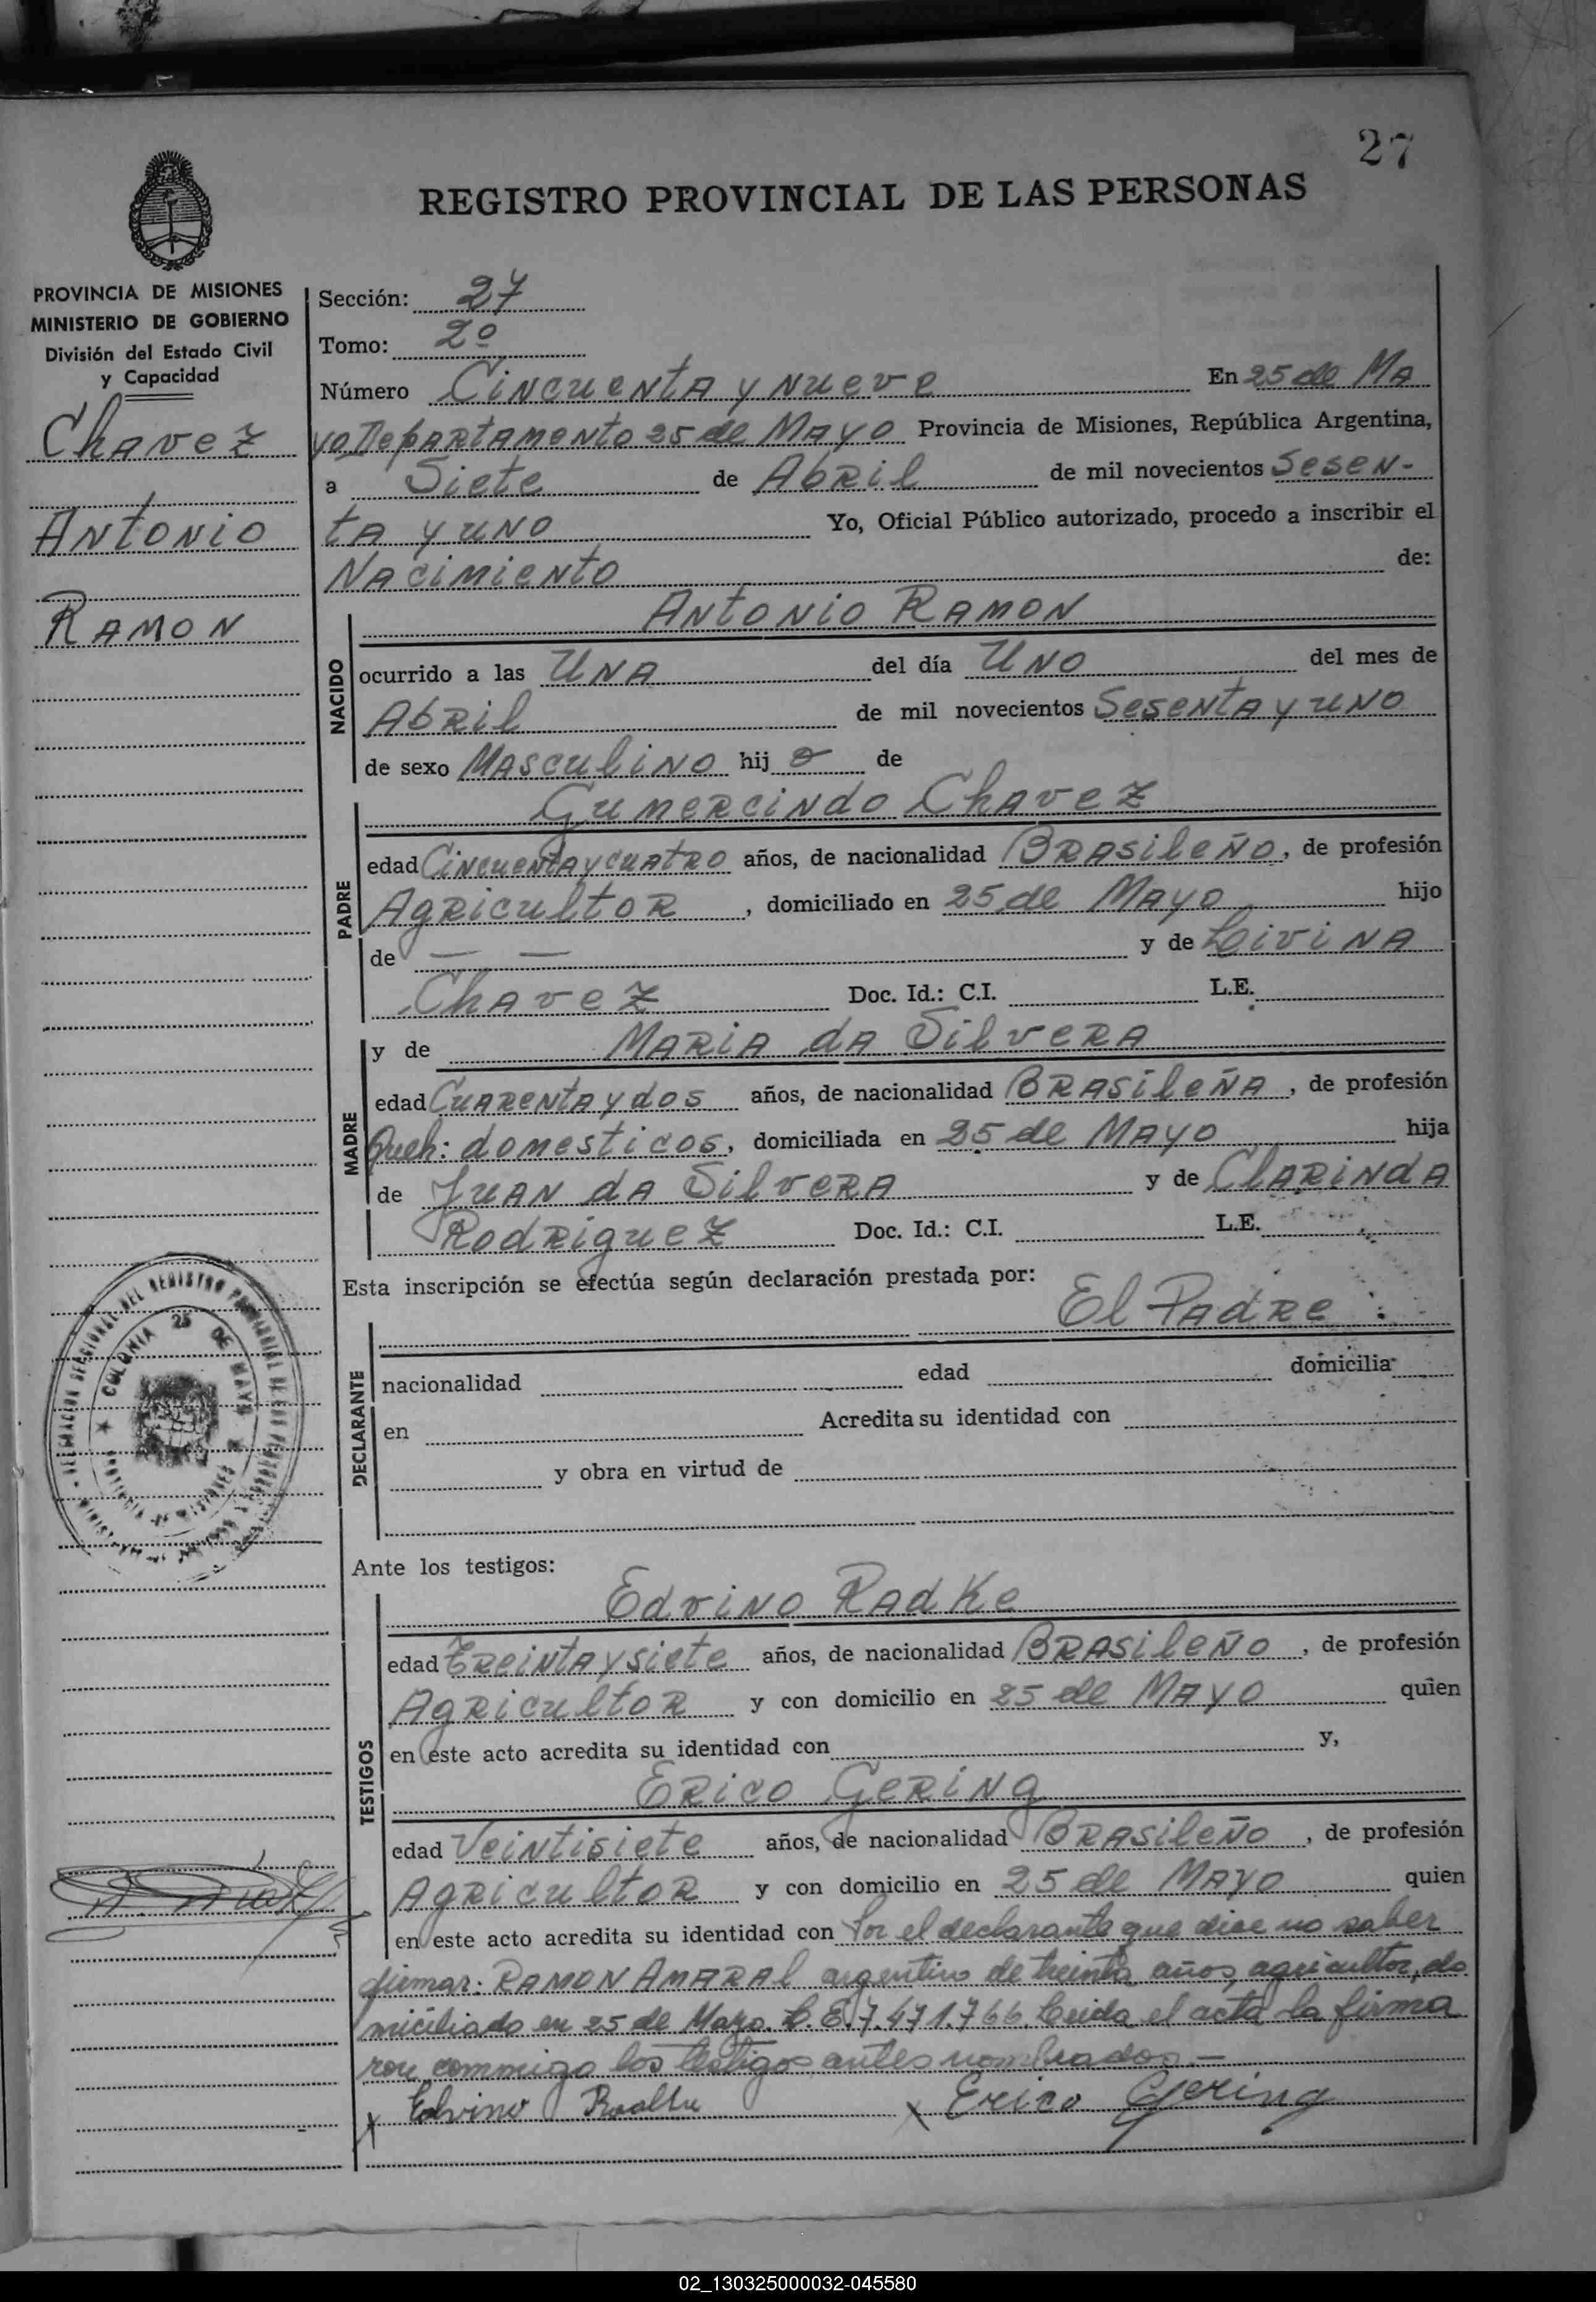 27
REGISTRO PROVINCIAL DE LAS PERSONAS
PROVINCIA DE MISIONES
MINISTERIO DE GOBIERNO
División del Estado Civil
y Capacidad
Chavez
Antonio
Ramon
Sección: 27
Tomo: 2º
Número Cincuenta y nueve En 25 de Ma
yo Departamento 25 de Mayo Provincia de Misiones, República Argentina,
a Siete de Abril de mil novecientos Sesen-
ta y uno Yo, Oficial Público autorizado, procedo a inscribir el
Nacimiento de:
Antonio Ramon
NACIDO
ocurrido a las Una del día Uno del mes de
Abril de mil novecientos Sesenta y uno
de sexo Masculino hij o de
Gumercindo Chavez
PADRE
edad Cincuenta y cuatro años, de nacionalidad Brasileño, de profesión
Agricultor, domiciliado en 25 de Mayo hijo
de — — y de Livina
Chavez Doc. Id.: C.I. L.E.
y de Maria da Silvera
MADRE
edad Cuarenta y dos años, de nacionalidad Brasileña, de profesión
Queh: domesticos, domiciliada en 25 de Mayo hija
de Juan da Silvera y de Clarinda
Rodriguez Doc. Id.: C.I. L.E.
Esta inscripción se efectúa según declaración prestada por:
El Padre
DECLARANTE
nacionalidad edad domicilia
en Acredita su identidad con
y obra en virtud de
COLONIA 25 DE MAYO
PROVINCIA DE MISIONES
Ante los testigos:
Edvino Radke
TESTIGOS
edad Treinta y siete años, de nacionalidad Brasileño, de profesión
Agricultor y con domicilio en 25 de Mayo quien
en este acto acredita su identidad con y,
Erico Gering
edad Veintisiete años, de nacionalidad Brasileño, de profesión
Agricultor y con domicilio en 25 de Mayo quien
en este acto acredita su identidad con Por el declarante que dice no saber
firmar: Ramon Amaral argentino de treinta años, agricultor, do
miciliado en 25 de Mayo. L.E. 7.471.766. Leida el acta la firma
ron commigo los testigos antes nombrados.—
x Edvino x Erico Gering
02_130325000032-045580